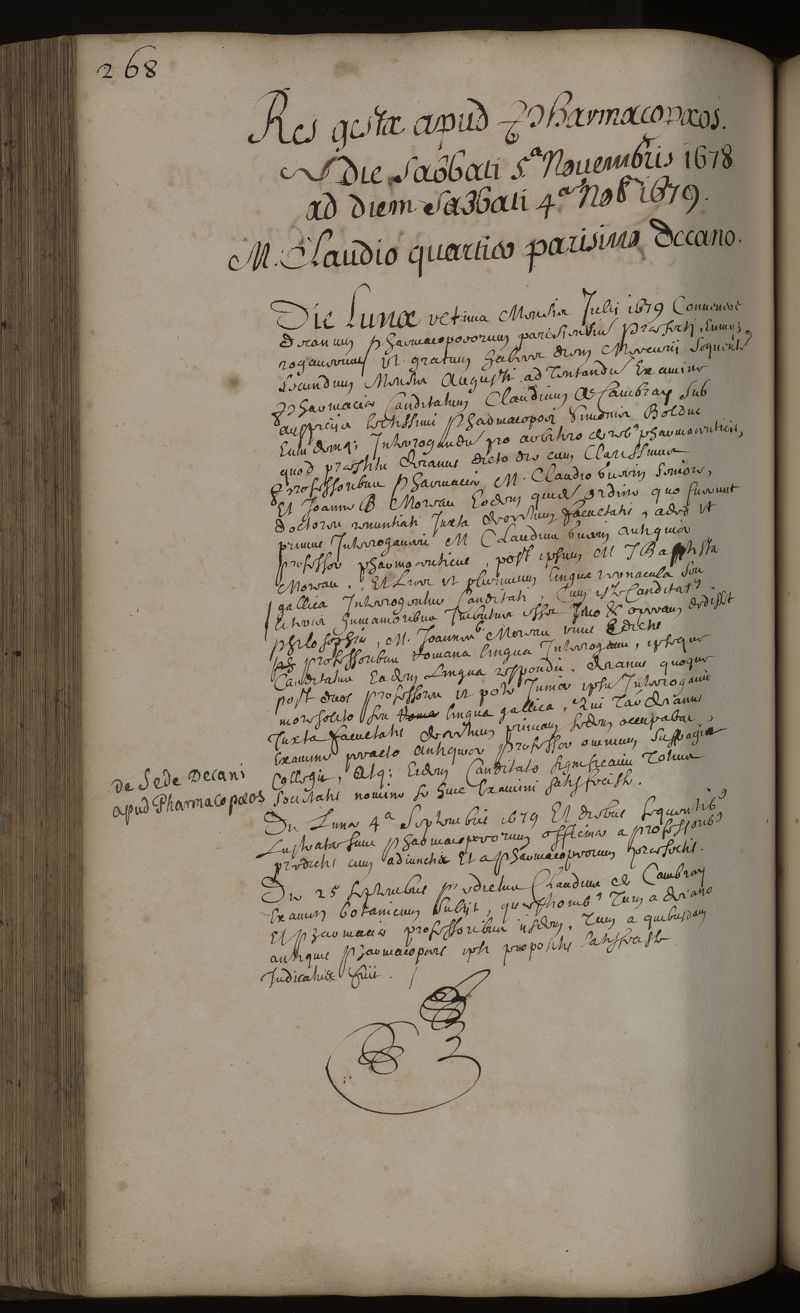 268
Res gestæ apud Pharmacopæos.
A die Sabbati 5ª Novembris 1678
ad diem Sabbati 4ª Nob 1679.
M. Claudio quartier parisino Decano.
Die Lunæ ultima Mensis Julij 1679 Convenere
decanum pharmacopoeorum parisiensium præfecti, Eumq;
rogaverunt ut gratum haberet diem Mercurij Sequentis
Secundum Mensis Augusti ad tentandum Examine
Pharmaciæ Canditatum Claudium de Cambray Sub
auspicijs lectissimi pharmacopoei Simonis Bolduc
Eumdemq; Interrogandum pro arbitrio de rebus pharmaceuticis,
quod præstitit decanus dicto die cum Clarissimis
professoribus pharmaciæ M. Claudio Guerin Seniore,
Et Joanne B Moreau Eodem quidem ordine quo fuerunt
doctores renuntiati Juxta decretum facultatis, adeo ut
primus Interrogaverit M Claudius Guerin Antiquior
professor pharmaceuticus, post ipsum M J Baptista
Moreau, Et licet ut plurimum lingua vernacula seu
gallica Interrogentur Canditati, Cum iste Canditatus
litteris humanioribus Imbutus esset Imo & operam dedisset
philosophiæ, M. Joannes B. Moreau unus E dictis
professoribus Romana lingua Interrogavit, ipseque
Canditatus Eadem Lingua respondit. decanus quoque
post duos professores ut pote Junior ipsum Interrogavit
more solito seu lingua gallica, qui Tamen decanus
Juxta facultatis decretum primam sedem occupabat,
Examine peracto antiquior professor omnium suffragia
Collegit, atq; Eidem Canditato significavit Totius
Societatis nomine se huic Examini satisfecisse.
de Sede Decani
apud Pharmacopæos
Die Lunæ 4ª Septembris 1679 Et diebus sequentibus
Lustratæ sunt pharmacopoeorum officinæ a professoribus
prædictis cum adiunctis Et a pharmacopoeorum præfectis.
Die 25 septembris prædictus Claudius de Cambray
Examen botanicum subijt, quæstionibus Tum a decano
Et pharmaciæ professoribus iisdem, Tum a quibusdam
antiquis pharmacopæis ipsi propositis satisfecisse
Judicatus fuit.